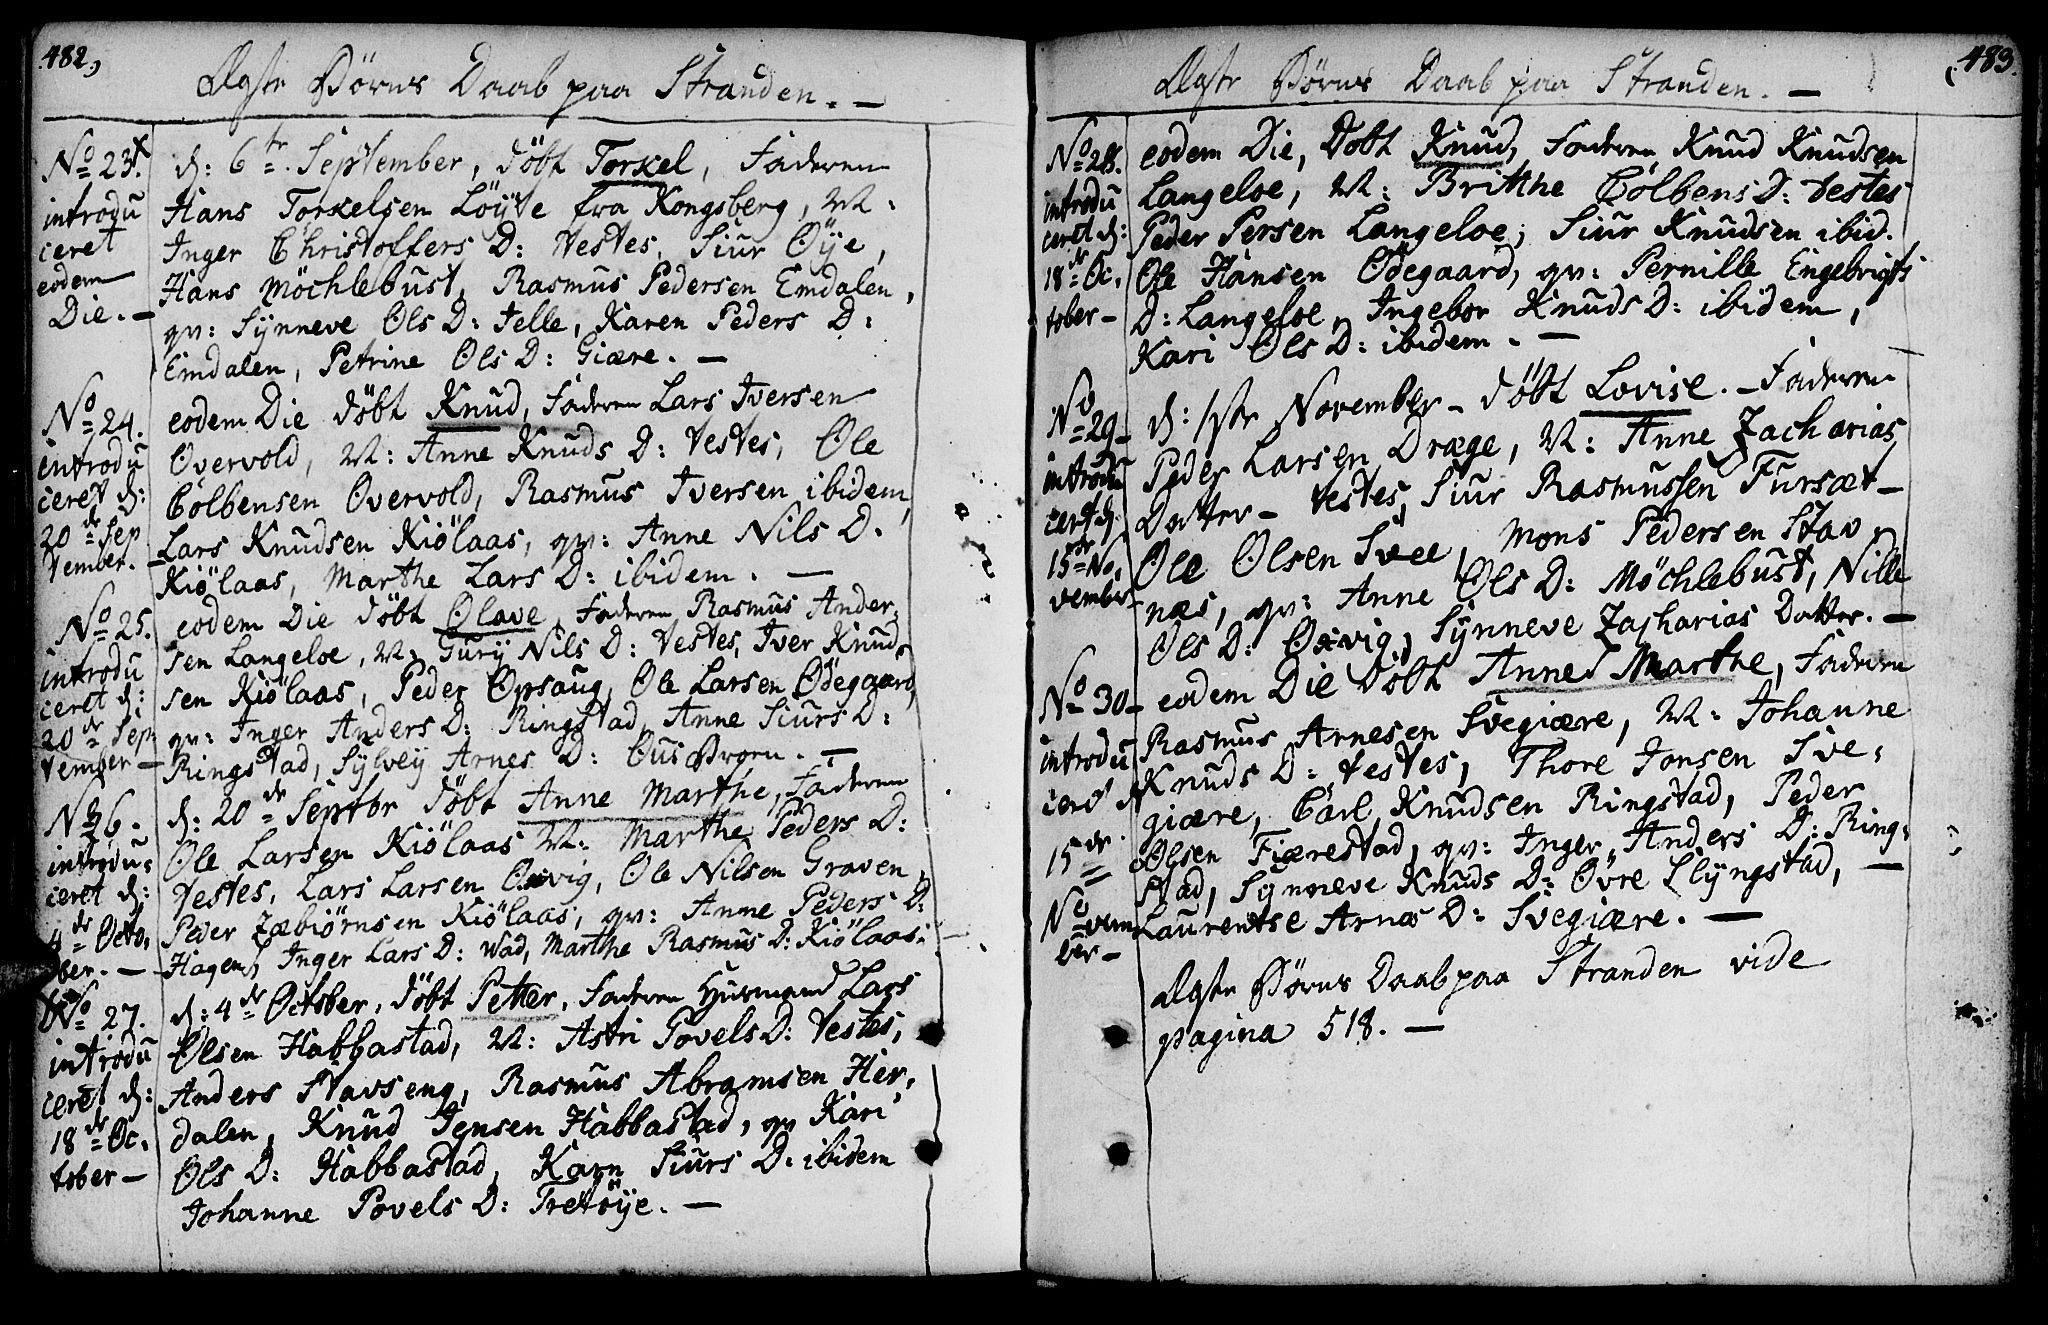 482,
Ægte Børns Daab paa Stranden. —
No 23.
introdu
ceret
eodem
Die. —
d: 6te September, döbt Torkel, Faderen
Hans Torkelsen Löyte fra Kongsberg, M:
Inger Christoffers D: testes, Siur Öye,
Hans Möchlebust, Rasmus Pedersen Emdalen,
qv: Synneve Ols D: Telle, Karen Peders D:
Emdalen, Petrine Ols D: Giære. —
No 24.
introdu
ceret d:
20de Sep
tember. —
eodem Die döbt Knud, Faderen Lars Iversen
Overvold, M: Anne Knuds D: testes, Ole
Colbensen Overvold, Rasmus Iversen ibidem,
Lars Knudsen Kiölaas, qv: Anne Nils D.
Kiölaas, Marthe Lars D: ibidem. —
No 25.
introdu
ceret d:
20de Sep
tember —
eodem Die döbt Olave, Faderen Rasmus Ander,
sen Langeloe, M: Gury Nils D: testes, Iver Knud,
sen Kiölaas, Peder Opsaug, Ole Larsen Ödegaard,
qv: Inger Anders D: Ringstad, Anne Siurs D:
Ringstad, Sylvey Arnes D: —
No 26.
introdu,
ceret d:
4de Octo,
ber. —
d: 20de Septbr döbt Anne Marthe, Faderen
Ole Larsen Kiölaas M: Marthe Peders D:
testes, Lars Larsen Oxvig, Ole Nilsen Graven,
Peder Zæbiörnsen Kiölaas, qv: Anne Peders D:
Hagen, Inger Lars D: Wad, Marthe Rasmus D: Kiölaas.
No 27.
introdu
ceret d:
18de Oc,
tober —
d: 4de October, döbt Petter, Faderen Husmand Lars
Olsen Habbastad, M: Astri Povels D: testes,
Anders Stavseng, Rasmus Abramsen Her,
dalen, Knud Jensen Habbastad, qv Kari
Ols D: Habbastad, Karn Siurs D. ibidem
Johanne Povels D: Tretöye. —
483.
Ægte Börns Daab paa Stranden. —
No 28.
introdu
ceret d:
18de Oc,
tober —
eodem Die, döbt Knud, Faderen Knud Knudsen
Langeloe, M: Britthe Colbens D: testes
Peder Persen Langeloe, Siur Knudsen ibid.
Ole Hansen Ödegaard, qv: Pernille Engebrigts
D: Langeloe, Ingebor Knuds D: ibidem,
Kari Ols D: ibidem. —
No 29 —
introdu
ceret d.
15de No,
vember
d: 1ste November — döbt Lovise. — Faderen
Peder Larsen Dræge, M: Anne Zacharias
Datter — testes, Siur Rasmussen Fursæt —
Ole Olsen Svee, Mons Pedersen Stav,
næs, qv: Anne Ols D: Möchlebust, Nille
Ols D: Oxvig, Synneve Zacharias Datter. —
No 30 —
introdu
ceret d
15de
Novem
ber —
eodem Die döbt Anne Marthe, Faderen
Rasmus Arnesen Svegiære, M: Johanne
Knuds D: testes, Thore Jonsen Sve,
giære, Carl Knudsen Ringstad, Peder
Olsen Fiærestad, qv: Inger Anders D: Ring,
stad, Synneve Knuds D: Övre Slyngstad, —
Laurentse Arnes D: Svegiære. —
Ægte Börns Daab paa Stranden vide
pagina 518. —